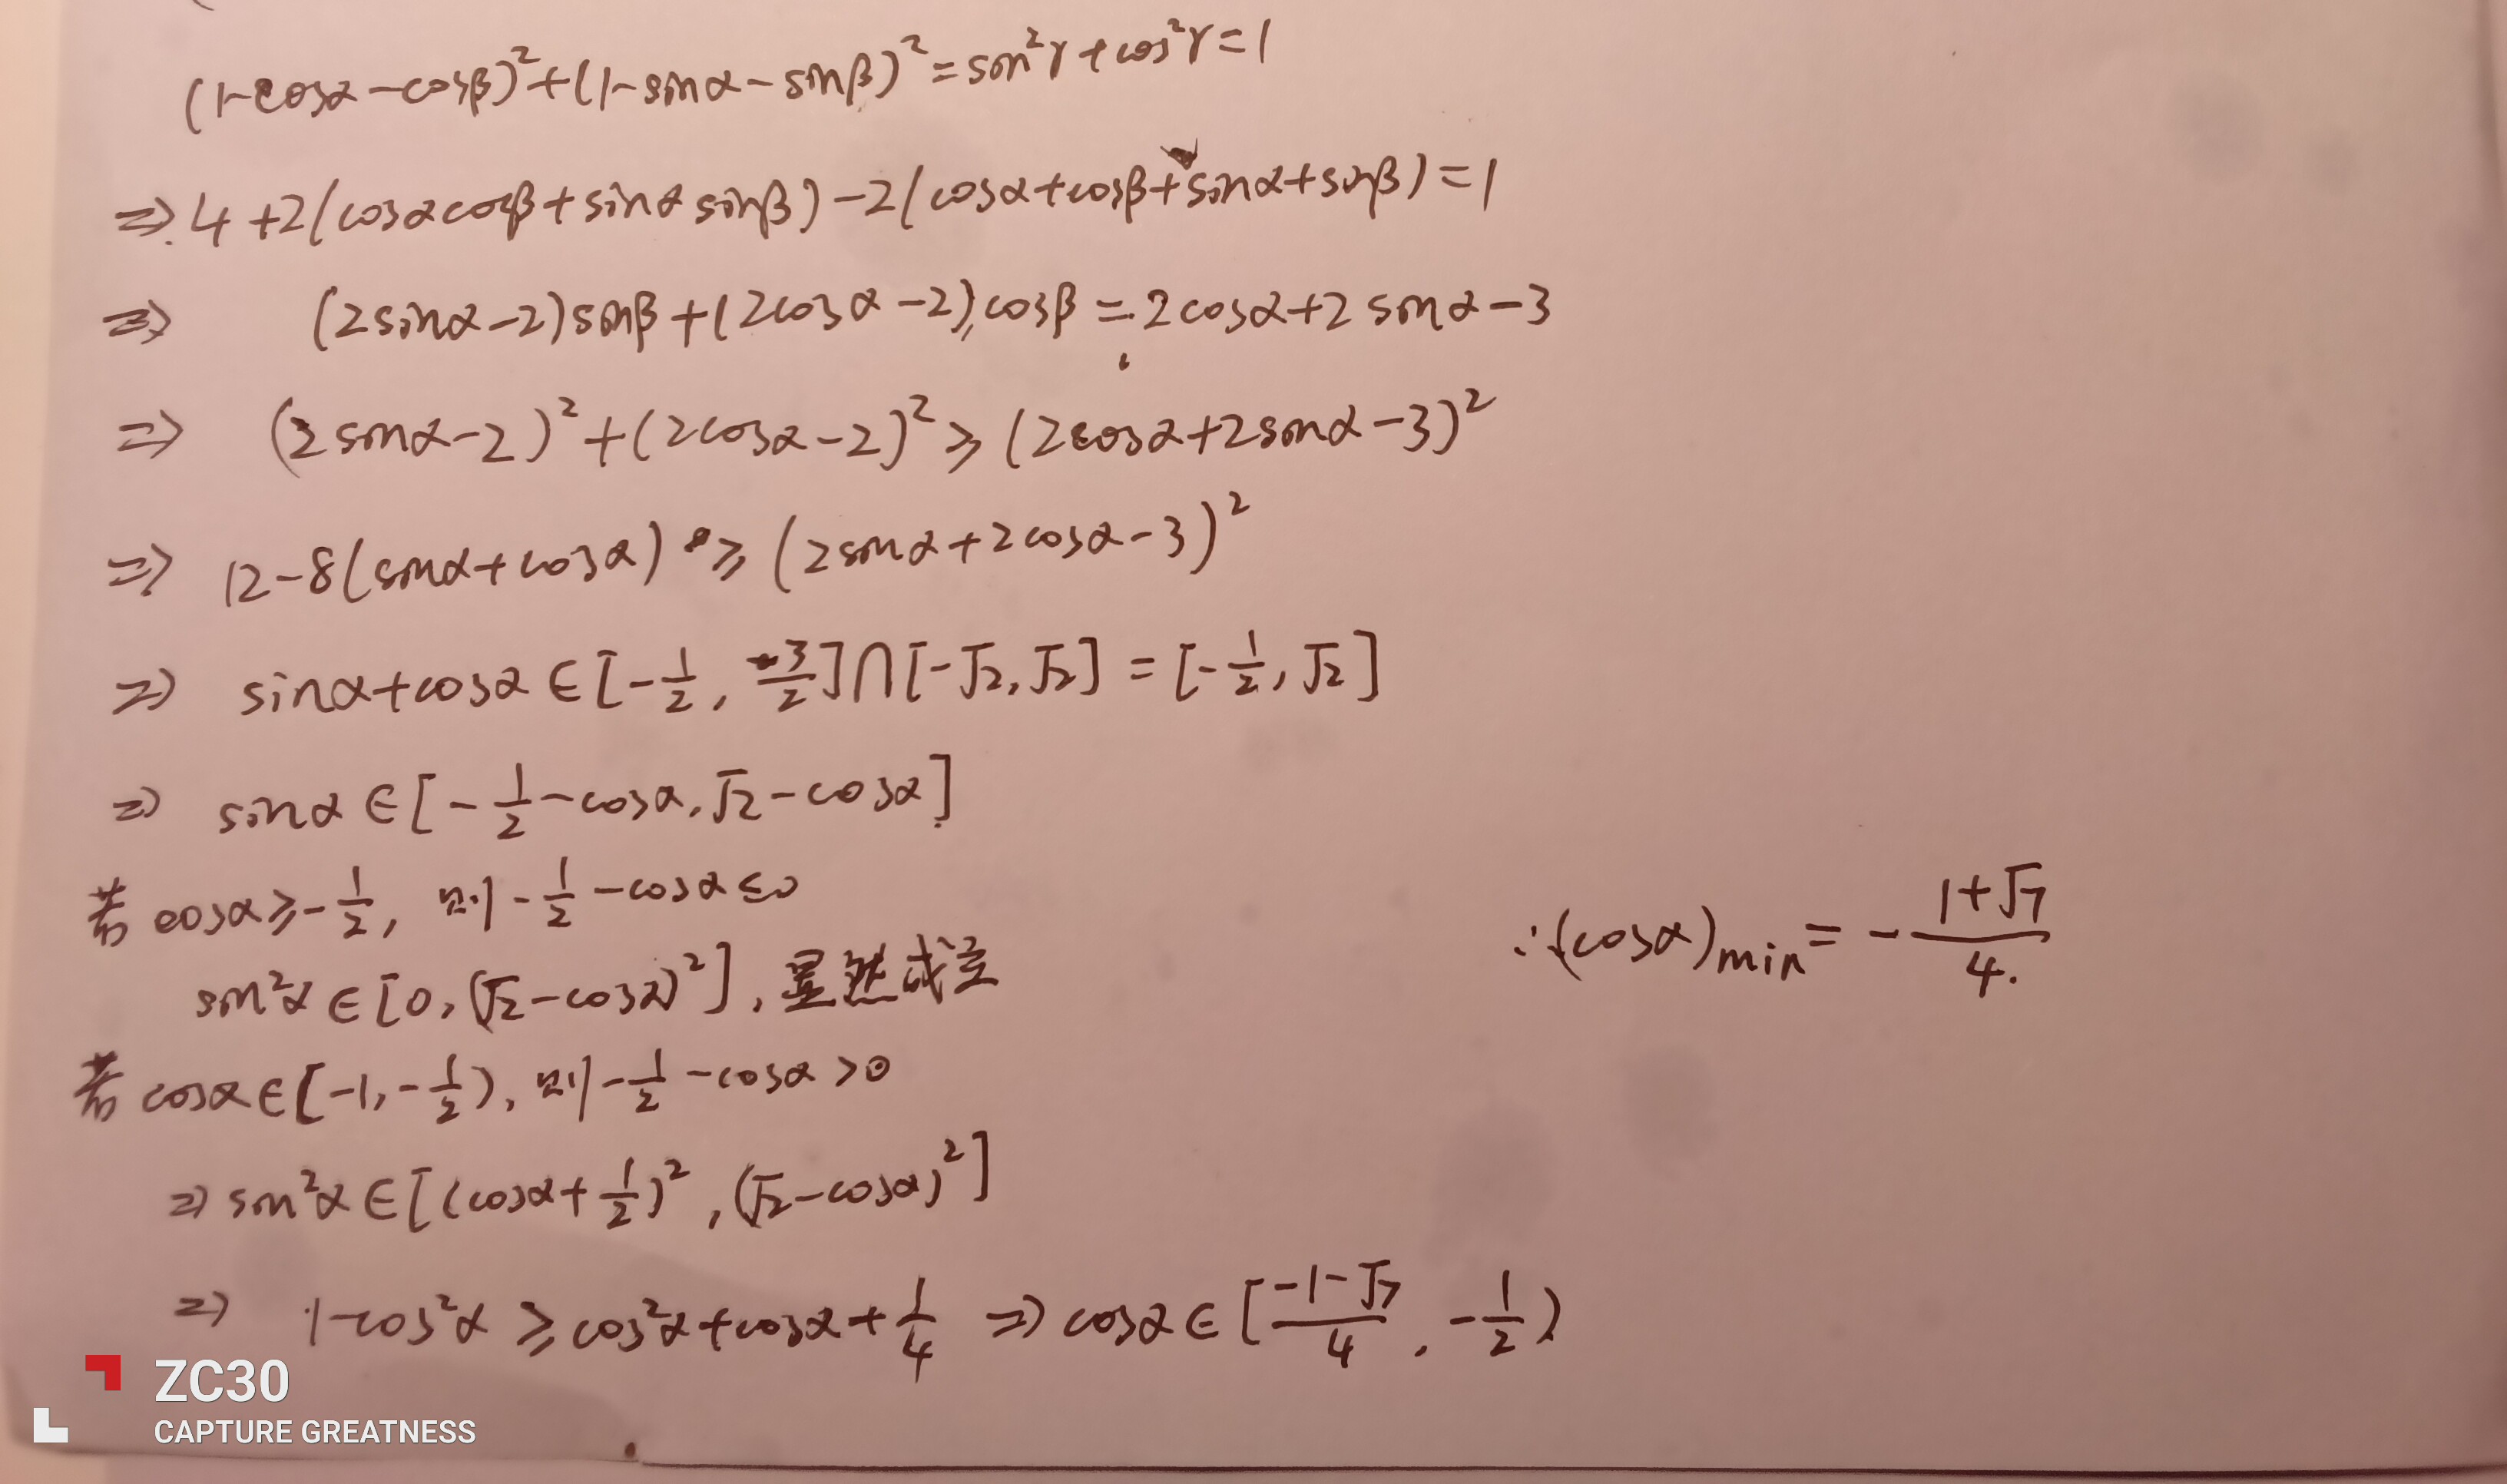 (1-cosα-cosβ)²+(1-sinα-sinβ)²=sin²γ+cos²γ=1
⇒4+2(cosαcosβ+sinαsinβ)-2(cosα+cosβ+sinα+sinβ)=1
⇒ (2sinα-2)sinβ+(2cosα-2)cosβ=2cosα+2sinα-3
⇒ (2sinα-2)²+(2cosα-2)²≥(2cosα+2sinα-3)²
⇒ 12-8(sinα+cosα)≥(2sinα+2cosα-3)²
⇒ sinα+cosα∈[-1/2, 3/2]∩[-√2,√2]=[-1/2,√2]
⇒ sinα∈[-1/2-cosα,√2-cosα]
若cosα≥-1/2, 则-1/2-cosα≤0
sin²α∈[0,(√2-cosα)²],显然成立
若cosα∈[-1,-1/2),则-1/2-cosα>0
⇒sin²α∈[(cosα+1/2)²,(√2-cosα)²]
⇒ 1-cos²α≥cos²α+cosα+1/4 ⇒cosα∈[(-1-√7)/4,-1/2)
∴(cosα)min=-(1+√7)/4.
ZC30
CAPTURE GREATNESS